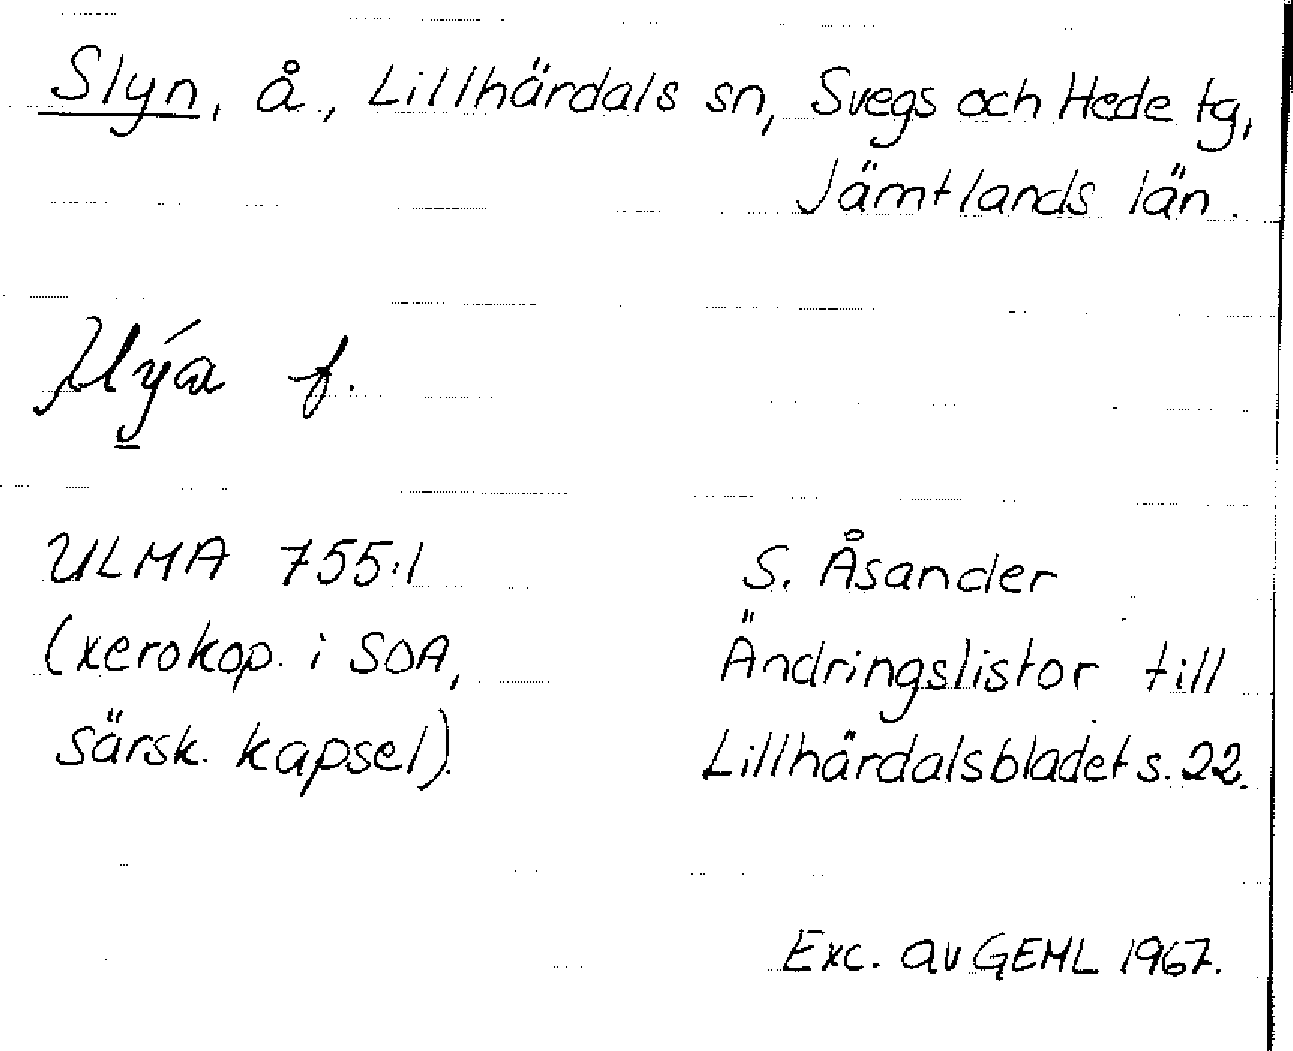 Slyn, å., Lillhärdals sn, Svegs och Hede tg,
Jämtlands län.
f.
ULMA 755:1
(xerokop. i SOA,
särsk. kapsel).
S. Åsander
Ändringslistor till
Lillhärdalsbladet s. 22.
Exc. av GEHL 1967.